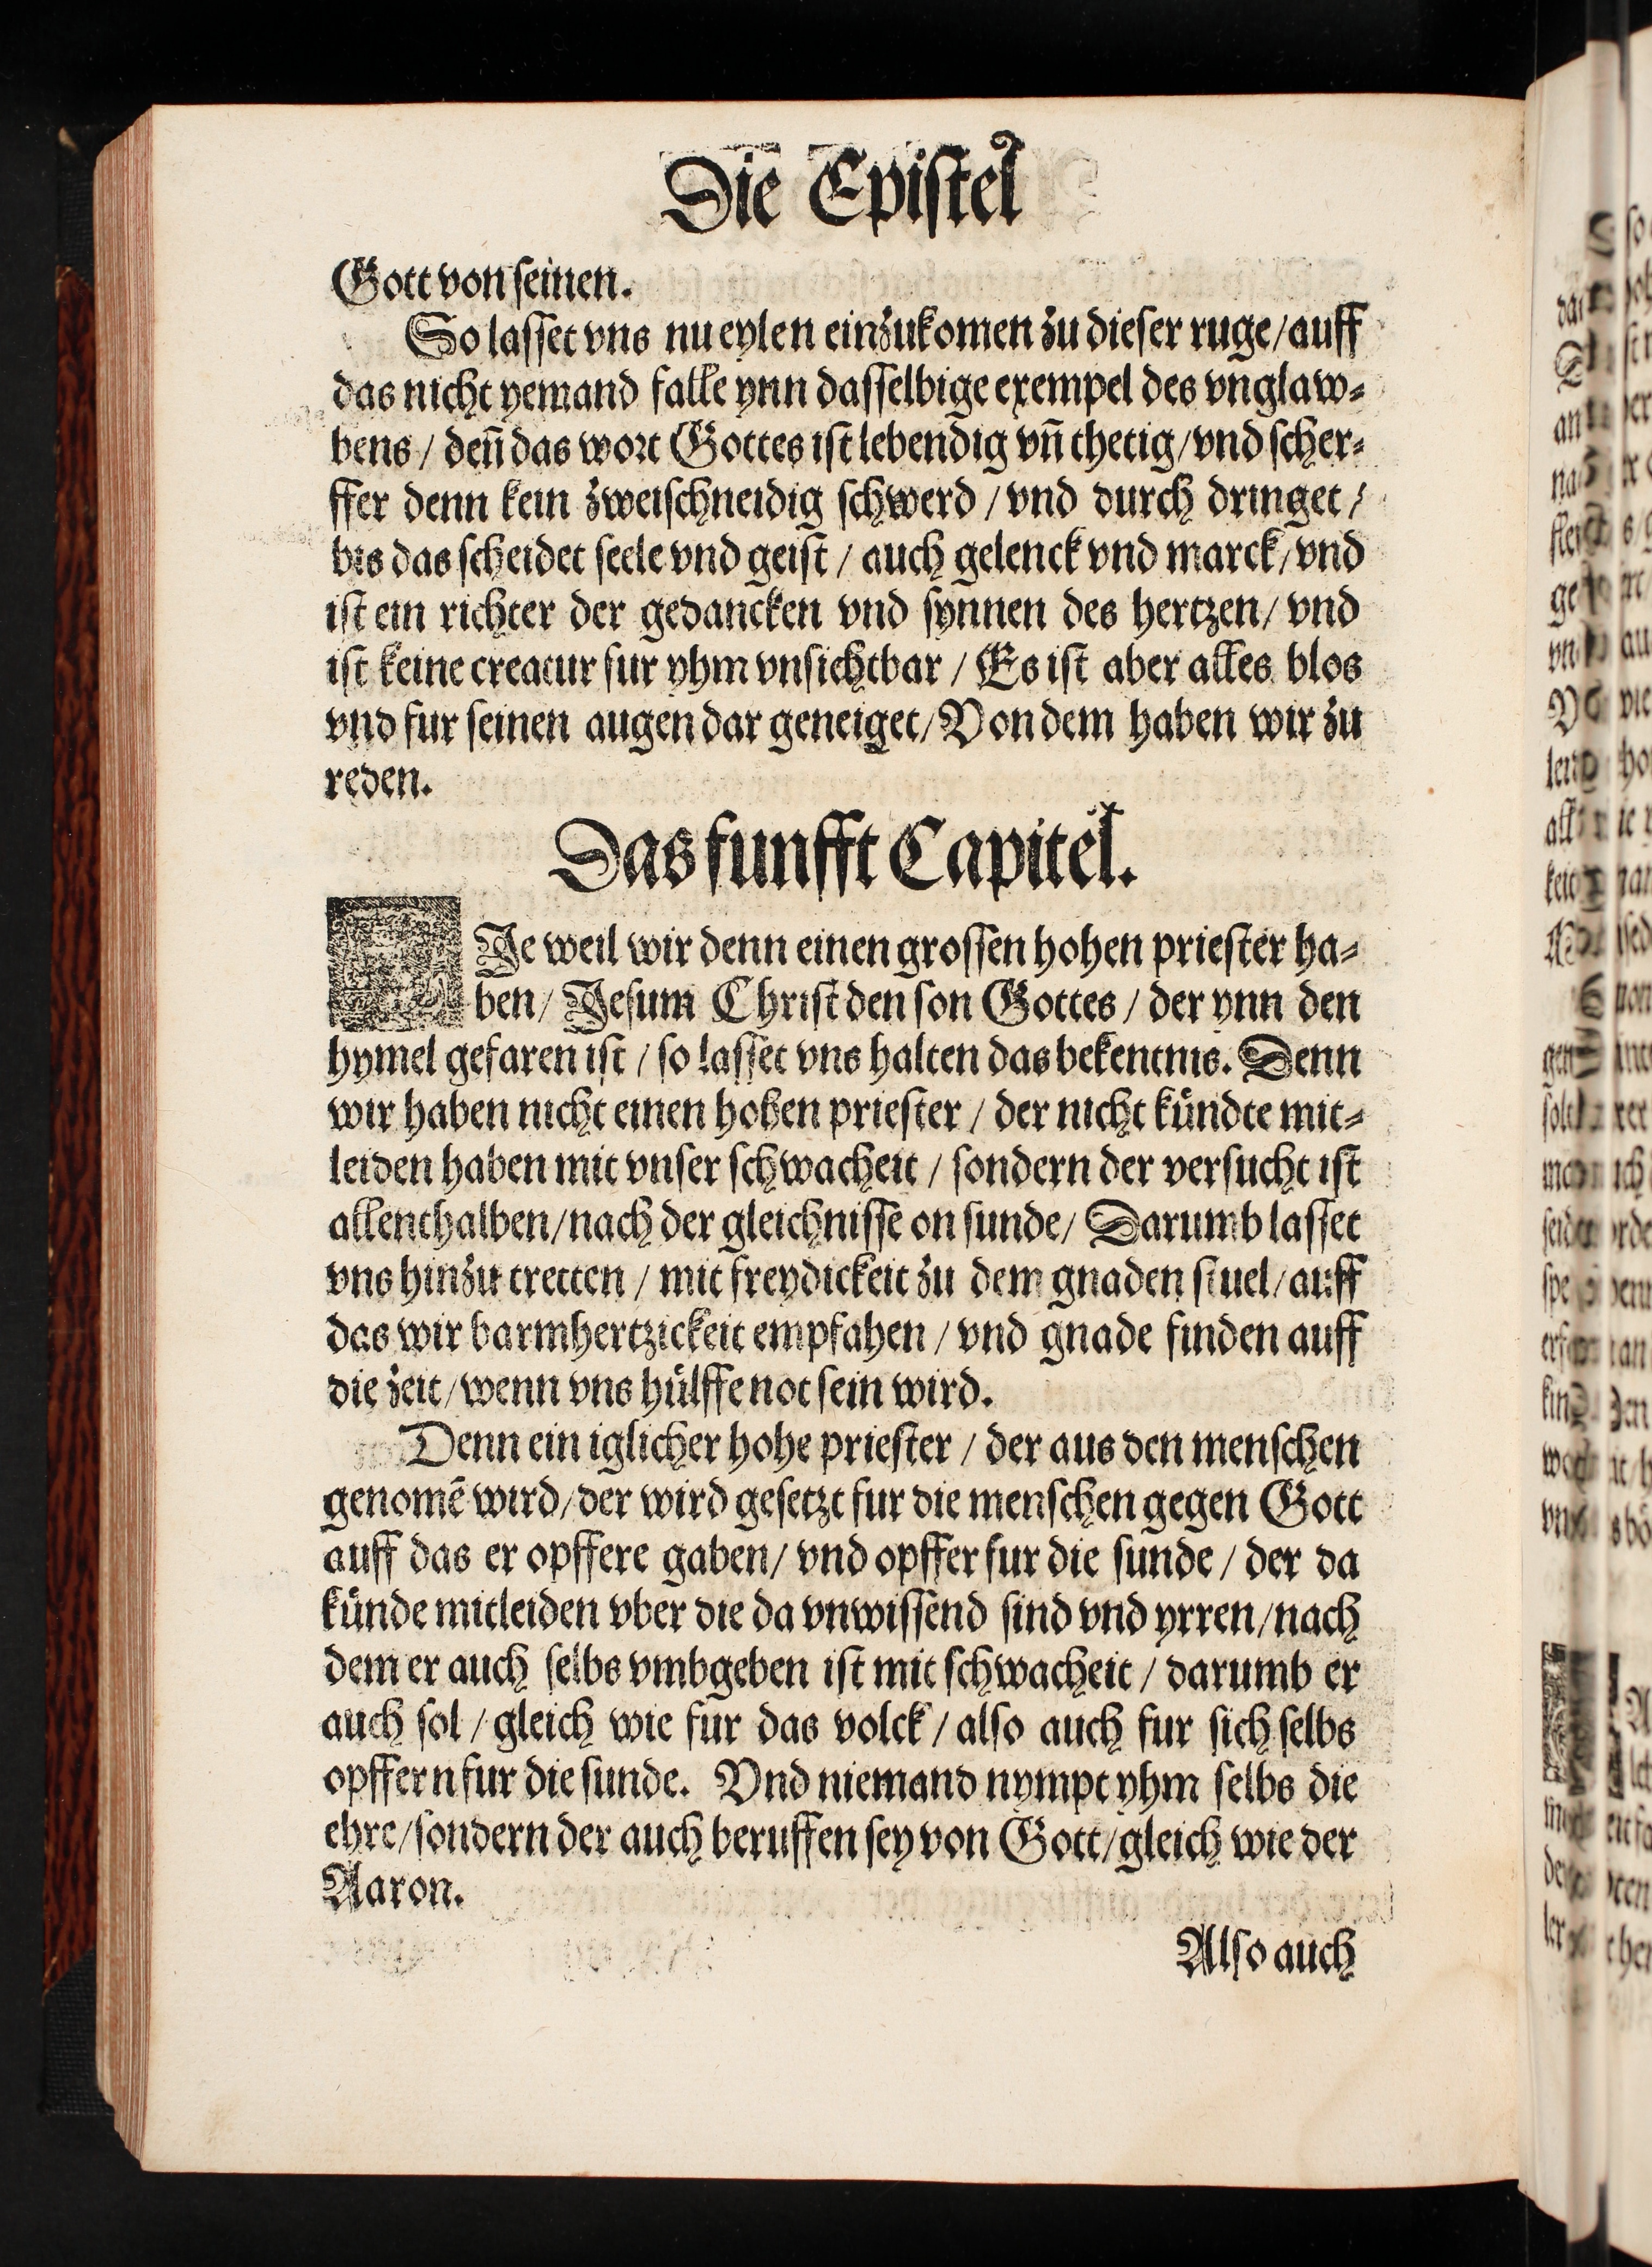 Die Epistel
Gott von seinen.
So lasset vns nu eylen einzukomen zu dieser ruge/auff
das nicht yemand falle ynn dasselbige exempel des vnglaw⸗
bens / deñ das wort Gottes ist lebendig vñ thetig/vnd scher⸗
ffer denn kein zweischneidig schwerd / vnd durch dringet /
bis das scheidet seele vnd geist / auch gelenck vnd marck/vnd
ist ein richter der gedancken vnd synnen des hertzen/ vnd
ist keine creatur fur yhm vnsichtbar / Es ist aber alles blos
vnd fur seinen augen dar geneiget/Von dem haben wir zu
reden.
Das funfft Capitel.
DIe weil wir denn einen grossen hohen priester ha⸗
ben/ Jesum Christ den son Gottes / der ynn den
hymel gefaren ist / so lasset vns halten das bekentnis. Denn
wir haben nicht einen hohen priester / der nicht kündte mit⸗
leiden haben mit vnser schwacheit / sondern der versucht ist
allenthalben/nach der gleichnisse on sunde/ Darumb lasset
vns hinzu tretten / mit freydickeit zu dem gnaden stuel/auff
das wir barmhertzickeit empfahen / vnd gnade finden auff
die zeit/wenn vns hülffe not sein wird.
Denn ein iglicher hohe priester / der aus den menschen
genomē wird/der wird gesetzt fur die menschen gegen Gott
auff das er opffere gaben/ vnd opffer fur die sunde / der da
künde mitleiden vber die da vnwissend sind vnd yrren/nach
dem er auch selbs vmbgeben ist mit schwacheit / darumb er
auch sol / gleich wie fur das volck / also auch fur sich selbs
opffern fur die sunde. Vnd niemand nympt yhm selbs die
ehre/sondern der auch beruffen sey von Gott/gleich wie der
Aaron.
Also auch